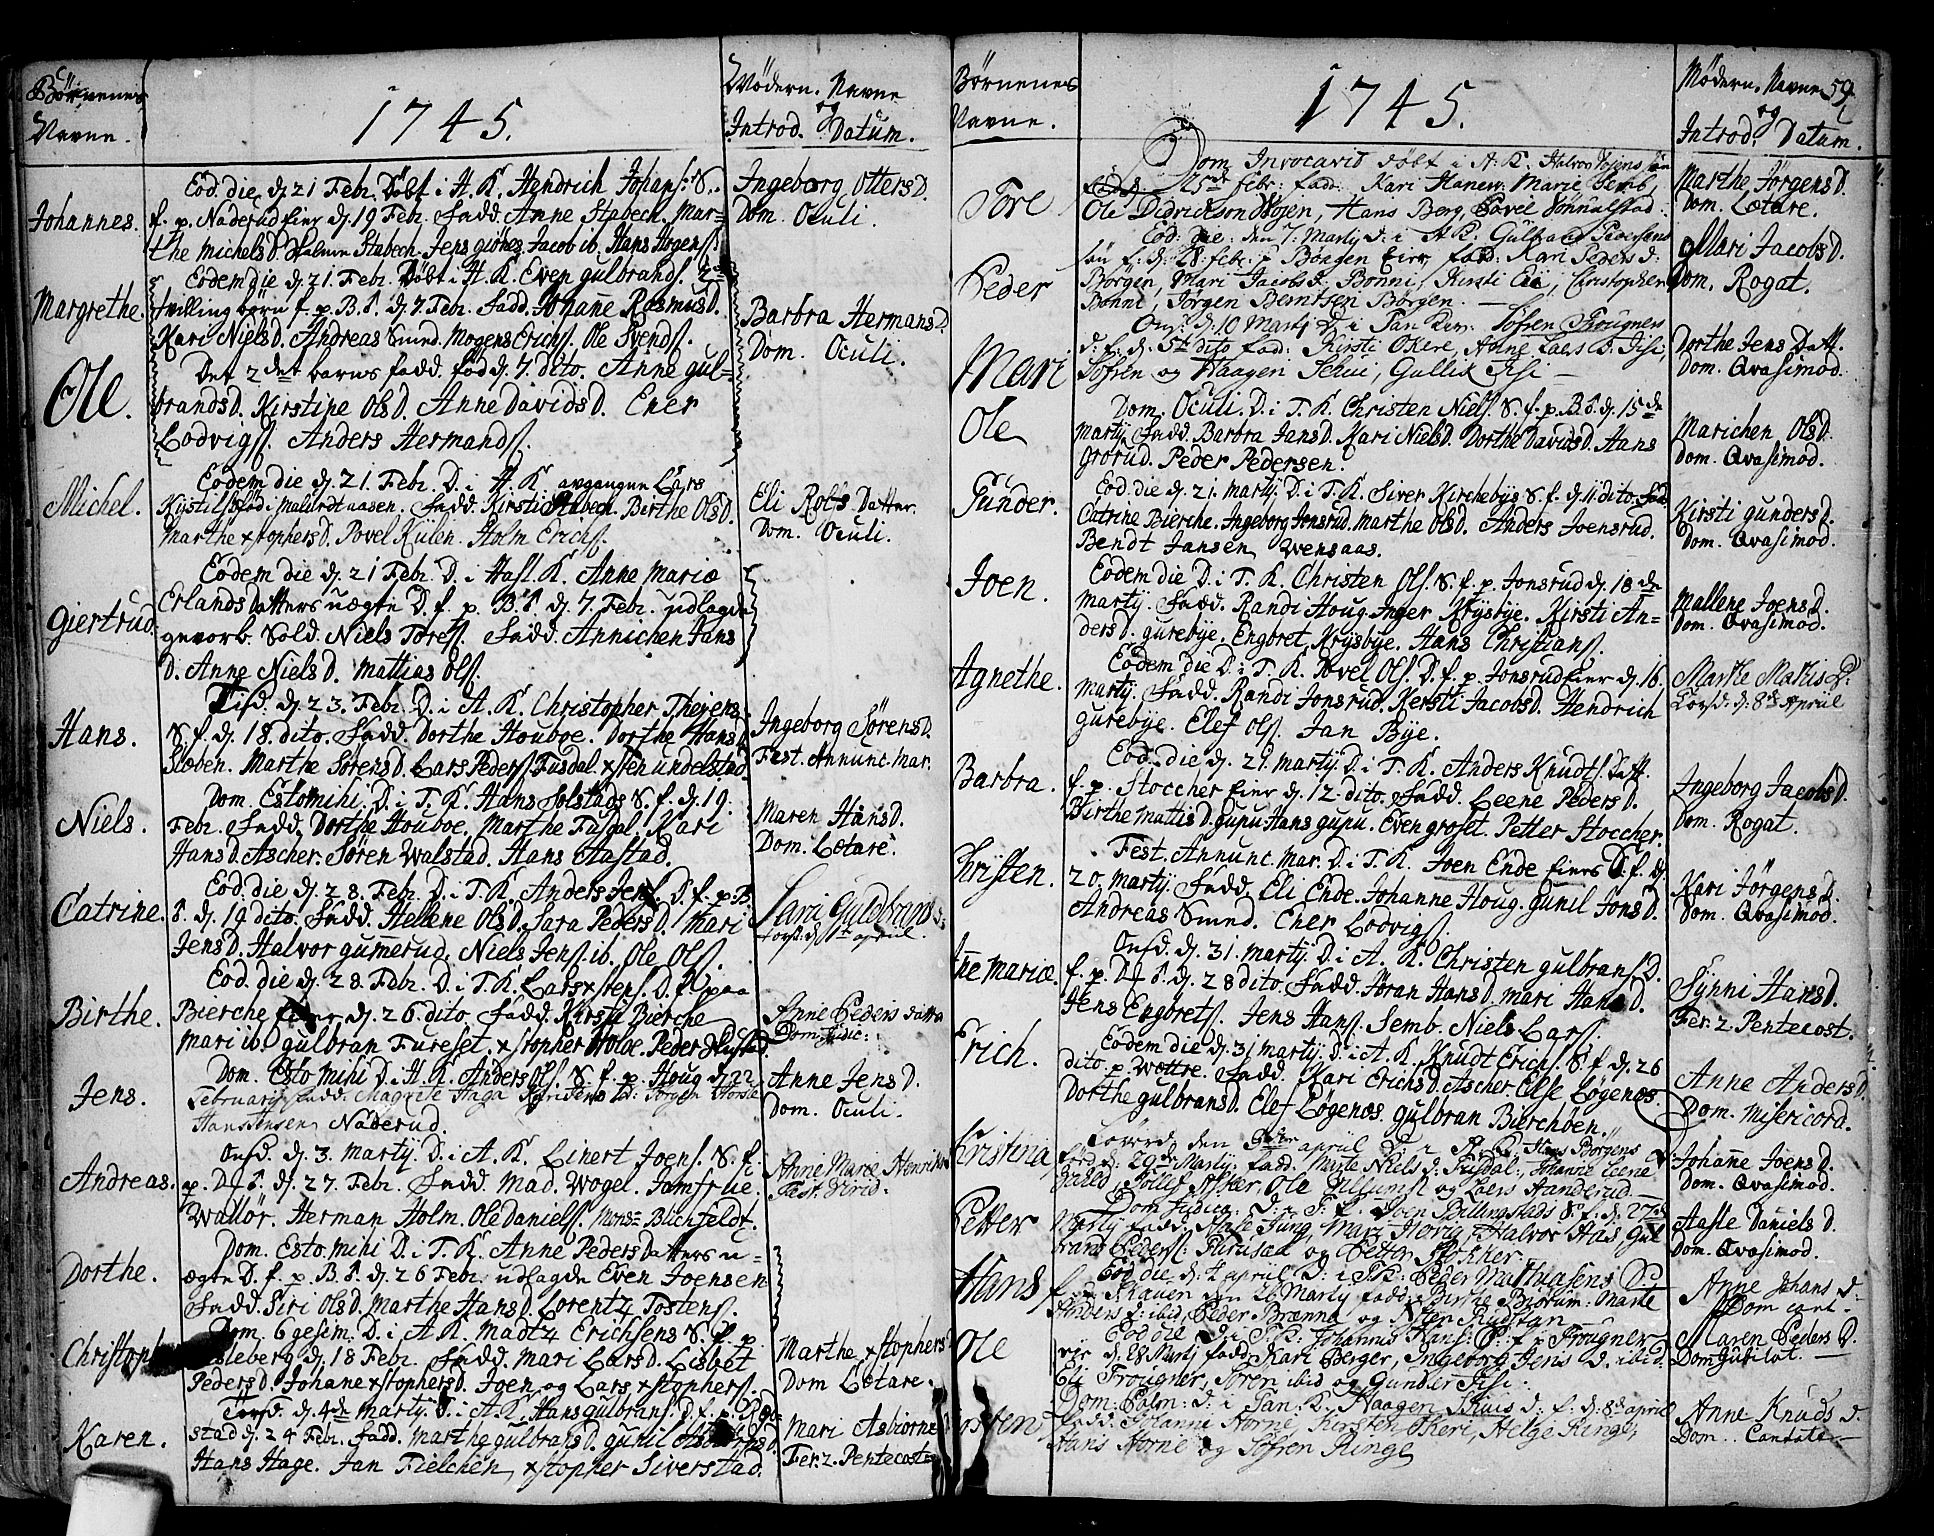 Börnenes
Navne.
1745.
Mödern. Navne
og
Introd. Datum.
Johannes.
Eod. die d. 21 Febr. Döbt i H. K. Hendrich Johans. S.
f. p. Naderud eier d. 19 Febr. Fadd. Anne Stabech. Mar=
the Michels D. Stabech. Jens Jacob ib. Hans
Ingeborg Otters D.
Dom. Oculi.
Margrethe.
Eodem die d. 21. Febr. Döbt i H. K. Even gulbrands.
tvilling börn f. p. B. S. d. 7. Febr. Fadd. Johane Rasmus D.
Kari Niels D. Andreas Smed. Mogens Erichs. Ole Svends.
Barbra Hermans D.
Dom. Oculi.
Ole.
Det 2det barns fadd. föd d. 7. dito. Anne gul=
brands D. Kirstine Ols D. Anne Davids D. Ener
Lodvigs. Anders Hermands.
Michel.
Eodem die d. 21. Febr. D. i H. K. avgangne Lars
Kystils föd i aasen. Fadd. Kirsti Stabech. Birthe Ols D.
Marthe xstophers D. Povel Kylen. Holm Erichs.
Eli Rolfs Datter.
Dom. Oculi.
Giertrud.
Eodem die d. 21 Febr. D. i Hasl. K. Anne Mariæ
Erlands Datters uægte D. f. p. B. S. d. 7. Febr. udlagde
gevorb. Sold. Niels Tores. Fadd. Annichen Jans
D. Anne Niels D. Mattias Ols.
Hans.
Tisd. d. 23. Febr. D. i A. K. Christopher
S. f. d. 18. dito. Fadd. Dorthe Houboe. Dorthe Hans D.
Sleben. Marthe Sörens D. Lars Peders Fusdal
Ingeborg Sörens D.
Fest. Annunt. Mar.
Niels.
Dom. Estomihi. D. i T. K. Hans Solstads S. f. d. 19.
Febr. Fadd. Dorthe Houboe. Marthe Fusdal. Kari
Hans D. Ascher. Sören Walstad. Hans Aastad.
Maren Hans D.
Dom. Lætare.
Catrine.
Eod. die d. 28. Febr. D. i T. K. Anders Jens. D. f. p. B.
S. d. 19 dito. Fadd. Hellene Ols D. Sara Peders D. Mari
Jens D. Halvor gumerud. Niels Jens. ib. Ole Ols.
april.
Birthe.
Eod. die d. 28. Febr. D. i T. K. Lars xstens. D. f. paa
Bierche eier d. 26 dito Fadd. Kirsti Bierche
Mari ib. gulbran Fureset. xstopher Peder
Anne Peders datter
Dom. Judic:
Jens.
Dom. Esto mihi D. i H. K. Anders Ols. S. f. p. Houg d. 22
February Fadd. Magrete Haga
Hans Jensen Naderud.
Anne Jens D.
Dom. Oculi.
Andreas.
Onsd. d. 3. Martij. D. i A. K. Linert Joens. S. f.
p. D. S. d. 27. Febr. Fadd. Mad. Wogel. Jomfrue
Wallör. Herman Holm. Ole Daniels. Mons= Blichfeldt.
Anne Mariæ
Dorthe.
Dom. Esto mihi D. i T. K. Anne Peders Datters u=
ægte D. f. p. B. S. d. 26 Febr. udlagde Even Joensen
Fadd. Siri Ols D. Marthe Hans D. Lorentz Tostens.
Christoph
Dom. 6gesim. D. i A. K. Madtz Erichsens S. f. p.
d. 18 Febr. Fadd. Mari Lars D. Lisbet
Peders D. Johane xstophers D. Joen og Lars xstophers.
Marthe xstophers
Dom Lætare.
Karen.
Torsd. d. 4de Martij. D. i A. K. Hans gulbrans. D. f. p.
stad d. 24 Febr. Fadd. Marthe gulbrans D. gunil
Hans Hage. Jan Fielchen, xstopher Siverstad.
Mari Asbiörns
Fer. 2. Pentecost=
Börnenes
Navne.
1745.
Mödern. Navne
og
Introd. Datum.
59
Tore
Dom. Invocavit döbt i A. K. Halvor sön
25de febr: fadd: Kari Marie Semb,
Ole Didrickson Wojen, Hans Berg,
Marthe Jörgens D.
Dom. Lætare.
Peder
Eod: die: den 7: Martij D: i A: K: Gulbrand Pedersens
sön f. d. 28 febr: p Borgen Eier, fadd: Kari Peders D:
Börgen, Mari Jacobs D. Bonni, Kirsti Eie, Christopher
Bonni, Jörgen Berntsen Borgen.
Mari Jacobs D.
Dom. Rogat.
Mari
Ons: d. 10 Martij D. i Tan Ker: Sofren Trougners
d. f. d. 5te dito fadd: Kirsti Okere, Anne Laes D. Jisi,
Sofren og Haagen Gullik Jisi
Dorthe Jens Datt.
Dom. Qvasimod.
Ole
Dom. Oculi. D. i T. K. Christen Niels. S. f. p. B. S. d. 15de
Martij. Fadd. Barbra Jans D. Kari Niels D. Dorthe Davids D. Hans
Grorud. Peder Pedersen.
Marichen Ols D.
Dom. Qvasimod.
Gunder.
Eod. die d. 21. Martij. D. i T. K. Siver Kirchebys S. f. d. 11. dito. Fad.
Catrine Bierche. Ingeborg Jonsrud. Marthe Ols D. Anders Joensrud.
Bendt Jansen Wensaas.
Kirsti gunders D.
Dom. Qvasimod.
Joen.
Eodem die D. i T. K. Christen Ols. S. f. p. Jonsrud d. 18de
Martij. Fadd. Randi Houg. Inger Krysbye. Kirsti An=
ders D. gurebye. Engbret Krysbye. Hans Christians.
Mallene Joens D.
Dom. Qvasimod.
Agnethe.
Eodem die D. i T. K. Povel Ols. D. f. p. Jonsrud eier d. 16.
Martij. Fadd. Randi Jonsrud. Kersti Jacobs D. Hendrich
gurebye. Elef Ols. Jan Bye.
Marthe Mathis D.
d: 8de Apriil
Barbra.
Eod. die d. 21. Martij. D. i T. K. Anders Knudts Datt.
f. p. Stoccher eier d. 12. dito. Fadd. Leene Peders D.
Birthe Mattis D. gupu Hans gupu. Even groset. Petter Stoccher.
Ingeborg Jacobs D.
Dom. Rogat.
Christen.
Fest. Annunt. Mar. D. i T. K. Joen Ende eiers D. f. d.
20. Martij. Fadd. Eli Ende. Johanne Houg. Gunil Jons D.
Andreas Smed. Ener Lodvigs.
Kari Jörgens D.
Dom. Qvasimod.
Anne Mariæ
Onsd. d. 31. Martij. D. i A. K. Christen gulbrans. D.
f. p. D. S. d. 28 dito. Fadd. Jöran Hans D. Mari Hans D.
Jens Engbrets. Jens Hans. Semb. Niels Lars.
Synni Hans D.
Fer. 2. Pentecost.
Erich.
Eodem die d. 31 Martij. D. i A. K. Knudt Erichs. S. f. d. 26
dito p. Wöttre. Fadd. Kari Erichs D. Ascher. Else Lögenæs
Dorthe gulbrans D. Elef Lögenæs. gulbran Bierchöen.
Anne Anders D.
Dom. Misericord.
Cristina
Löverd. den 3die apriil D: i A. K. Hans Borgens D.
föd d. 29de Martij: fadd. Marte Niels D: Fusdal, Johanne Leene
Ole og Laers Handerud.
Johane Joens D.
Dom. Qvasimod.
Petter
Dom Judica: D: i T. K. Joen Spillingstads S: f: d. 27de
Martij fadd: Aase Jung, Mari Halvor Aas, Gul
brand Peders: og Petter Stokker.
Aasle Daniels D.
Dom. Qvasimod.
Hans
Eod die d. 4 apriil D: i T. K: Peder Mathiasens S:
f. p. Skauen den 26 Martij fadd: Birthe Biörum: Marte
Anders D: ibid, Peder Brænna og Sten Rudstan
Anne Johans D:
Dom cant.
Ole
Eod die D: i T. K: Johannes Hans: S: f. i Trougner
vir d. 28 Martij fadd: Kari Berger, Ingeborg Jens D. ibid.
Eli Trougner, Sören ibid og Gunder Jisi:
Maren Peders D.
Dom Jubilat.
Dom: Palm: D: i Tan: K: Haagen D: f: d. 8de april
fadd: Johanne Horne, Kirsten Okeri, Helge Ringe,
Hans Horne og Sofren Ringe
Anne Knuds D.
Dom. Cantate